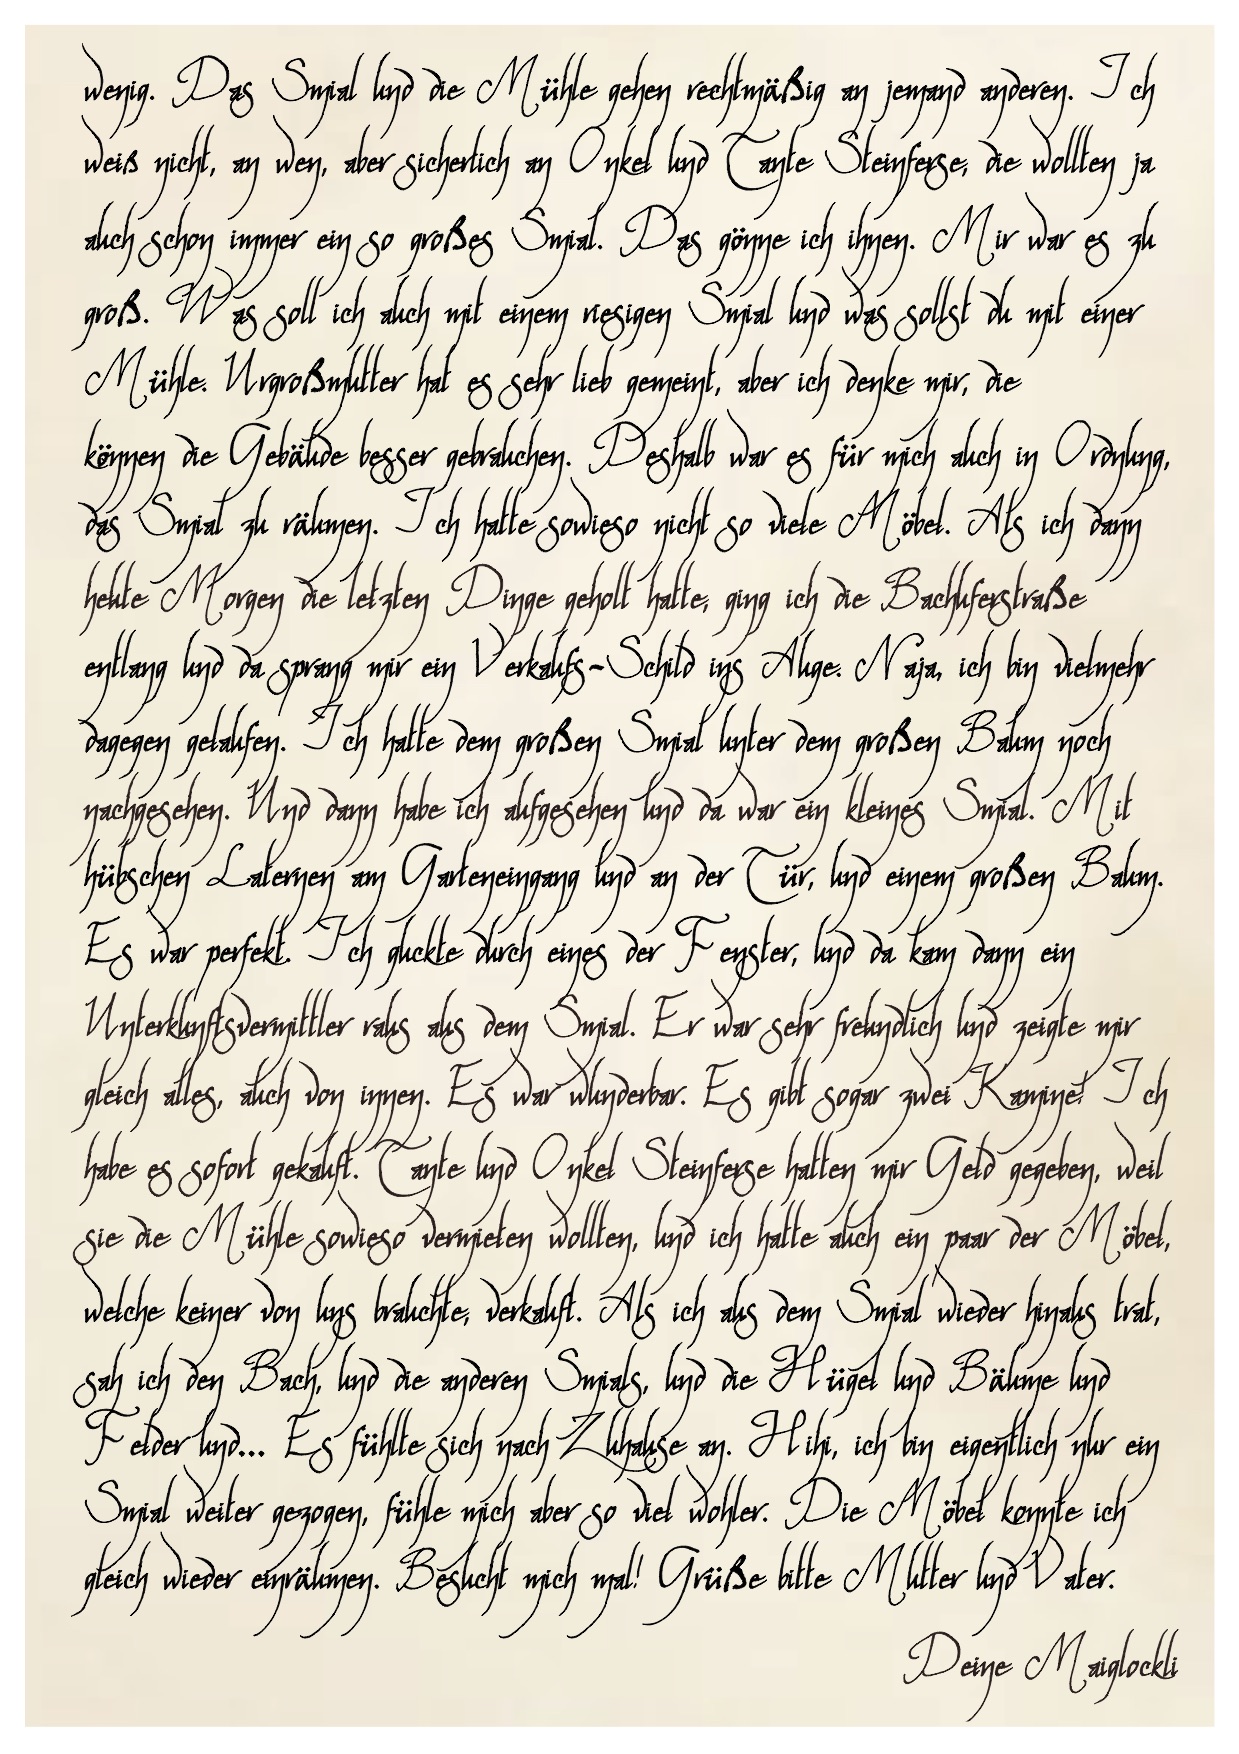 wenig. Das Smial und die Mühle gehen rechtmäßig an jemand anderen. Ich
weiß nicht, an wen, aber sicherlich an Onkel und Tante Steinferse, die wollten ja
auch schon immer ein so großes Smial. Das gönne ich ihnen. Mir war es zu
groß. Was soll ich auch mit einem riesigen Smial und was sollst du mit einer
Mühle. Urgroßmutter hat es sehr lieb gemeint, aber ich denke mir, die
können die Gebäude besser gebrauchen. Deshalb war es für mich auch in Ordnung,
das Smial zu räumen. Ich hatte sowieso nicht so viele Möbel. Als ich dann
heute Morgen die letzten Dinge geholt hatte, ging ich die Bachuferstraße
entlang und da sprang mir ein Verkaufs-Schild ins Auge. Naja, ich bin vielmehr
dagegen gelaufen. Ich hatte dem großen Smial unter dem großen Baum noch
nachgesehen. Und dann habe ich aufgesehen und da war ein kleines Smial. Mit
hübschen Laternen am Garteneingang und an der Tür, und einem großen Baum.
Es war perfekt. Ich guckte durch eines der Fenster, und da kam dann ein
Unterkunftsvermittler raus aus dem Smial. Er war sehr freundlich und zeigte mir
gleich alles, auch von innen. Es war wunderbar. Es gibt sogar zwei Kamine! Ich
habe es sofort gekauft. Tante und Onkel Steinferse hatten mir Geld gegeben, weil
sie die Mühle sowieso vermieten wollten, und ich hatte auch ein paar der Möbel,
welche keiner von uns brauchte, verkauft. Als ich aus dem Smial wieder hinaus trat,
sah ich den Bach, und die anderen Smials, und die Hügel und Bäume und
Felder und... Es fühlte sich nach Zuhause an. Hihi, ich bin eigentlich nur ein
Smial weiter gezogen, fühle mich aber so viel wohler. Die Möbel konnte ich
gleich wieder einräumen. Besucht mich mal! Grüße bitte Mutter und Vater.
Deine Maiglockli